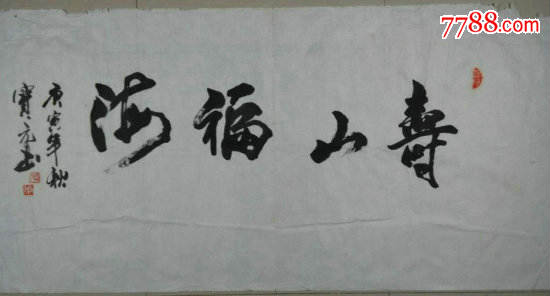 7788.com
壽山福海
庚寅年秋
寶元書